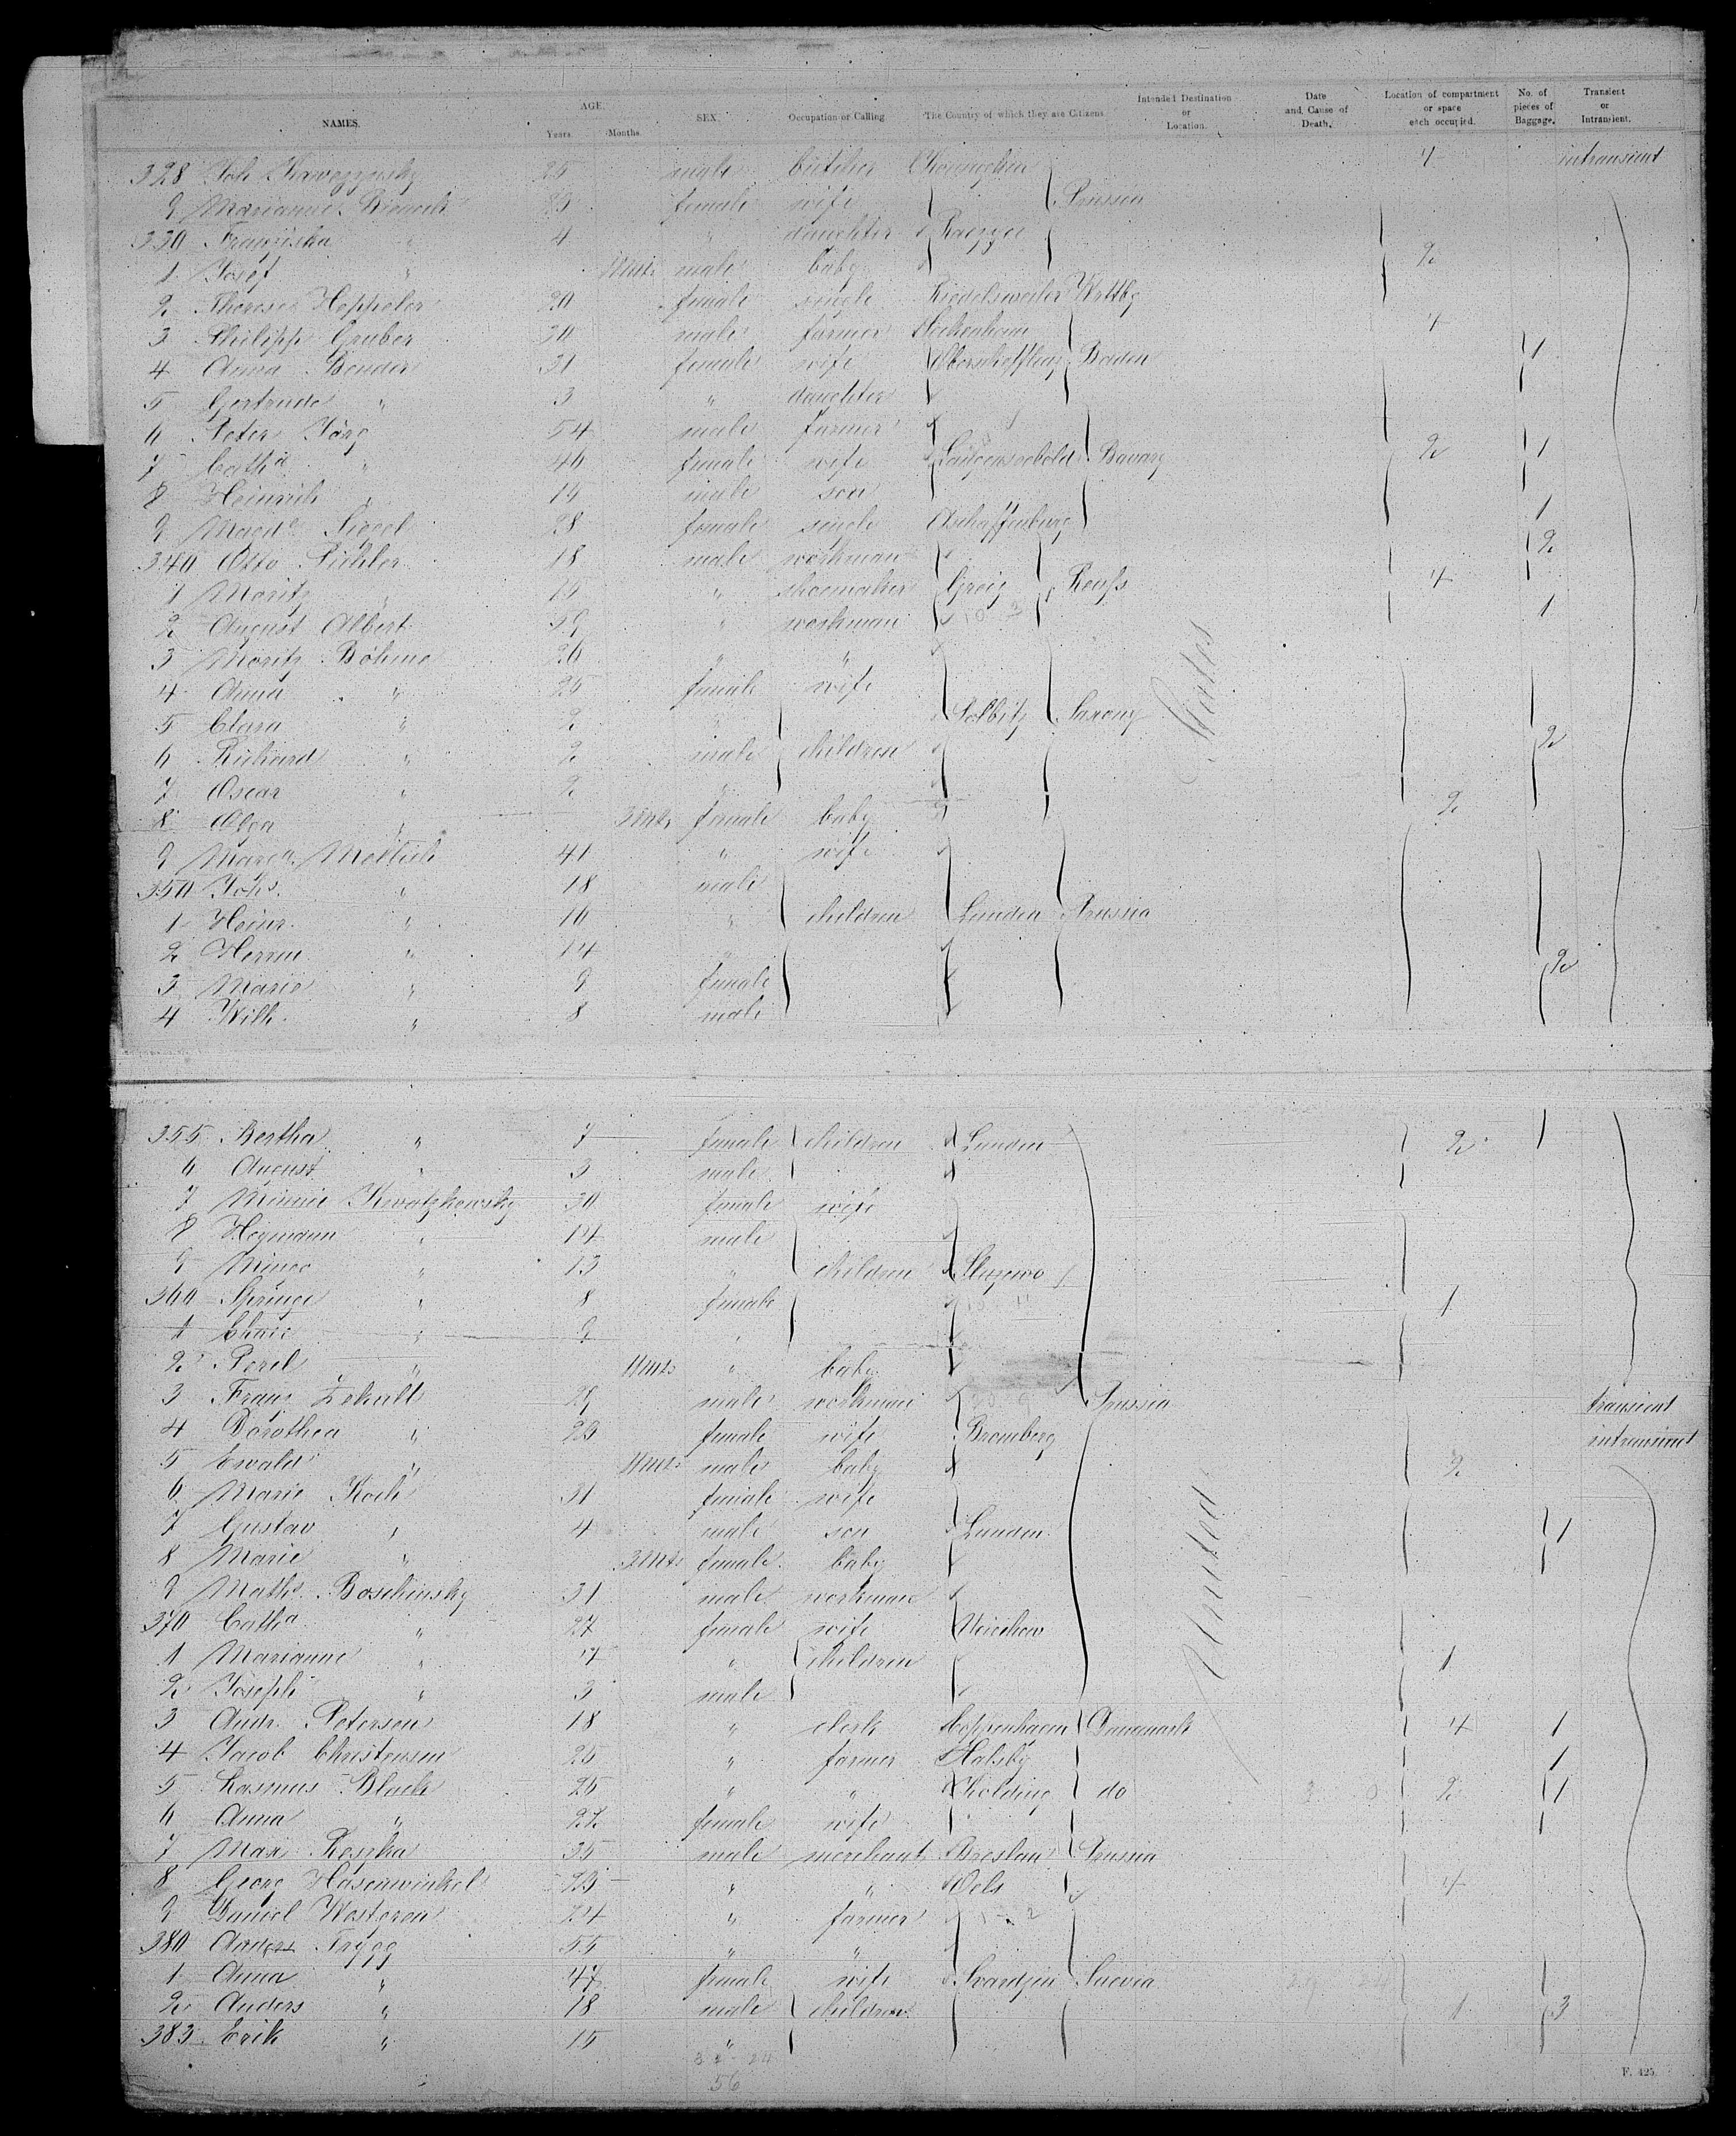 NAMES. AGE. Years. Months. SEX. Occupation or Calling. The Country of which they are Citizens. Intended Destination or Location. Date and Cause of Death. Location of compartment or space each occupied. No. of pieces of Baggage. Transient or Intransient.
328 Joh 25 male butcher 4 intransient
9 Marianne 23 female wife Prussia
330 Franziska " 4 " daughter
1 Josef " 11 mts male baby 2
2 Therese Heppeler 20 female single Riedelsweiler Wrttbg
3 Philipp Gruber 30 male farmer 4
4 Anna Bender 31 female wife Baden 1
5 Gertrude " 3 " daughter
6 Peter Jörg 54 male farmer
7 Catha " 46 female wife Langenselbold Bavary 2 1
8 Heinrich " 14 male son
9 Magda Siegel 28 female single Aschaffenburg 1
340 Otto Pichler 18 male workman 2
1 Moritz " 15 " shoemaker Greiz Reuss 4
2 August Albert 59 " workman 1
3 Moritz Böhme 26 " "
4 Anna " 25 female wife
5 Clara " 2 " Selbitz Saxony
6 Richard " 2 male children 2
7 Oscar " 2 "
8 Olga " 3 mts female baby 2
9 Marga. 41 " wife
350 Johs. " 18 male
1 Heinr. " 16 " children Lunden Prussia
2 Herm. " 14 "
3 Marie " 9 female 2
4 Wilh. " 8 male
States
355 Bertha " 7 female children Lunden 2 1
6 August " 3 male
7 Minnie Kwatzkowsky 30 female wife
8 Heymann " 14 male
9 " 13 " children Sluzewo
360 Springe " 8 female 1
1 " 9 "
2 Perel " 11 mts " baby
3 Franz 29 male workman Prussia transient
4 Dorothea " 23 female wife Bromberg intransient
5 Ewald " 11 mts male baby 2
6 Marie Koch 31 female wife
7 Gustav " 4 male son Lunden 1
8 Marie " 3 mts female baby
9 Maths. Boschinsky 31 male workman
370 Catha " 27 female wife
1 Marianne " 7 " children 1
2 Joseph " 3 male
3 Andr. Petersen 18 " clerk Coppenhagen Danmark 4 1
4 Jacob Christensen 25 " farmer Halsby 1
5 Rasmus Black 25 " " Kolding do 2 1
6 Anna " 22 female wife
7 Max 35 male merchant Breslau Prussia
8 Georg Hasenwinkel 23 " " Oels 4
9 Daniel Westgren 24 " farmer
380 Anders Trygg 55 " "
1 Anna " 47 female wife Suevia
2 Anders " 18 male children 1 3
383 Erik " 15 "
United
56
F. 425